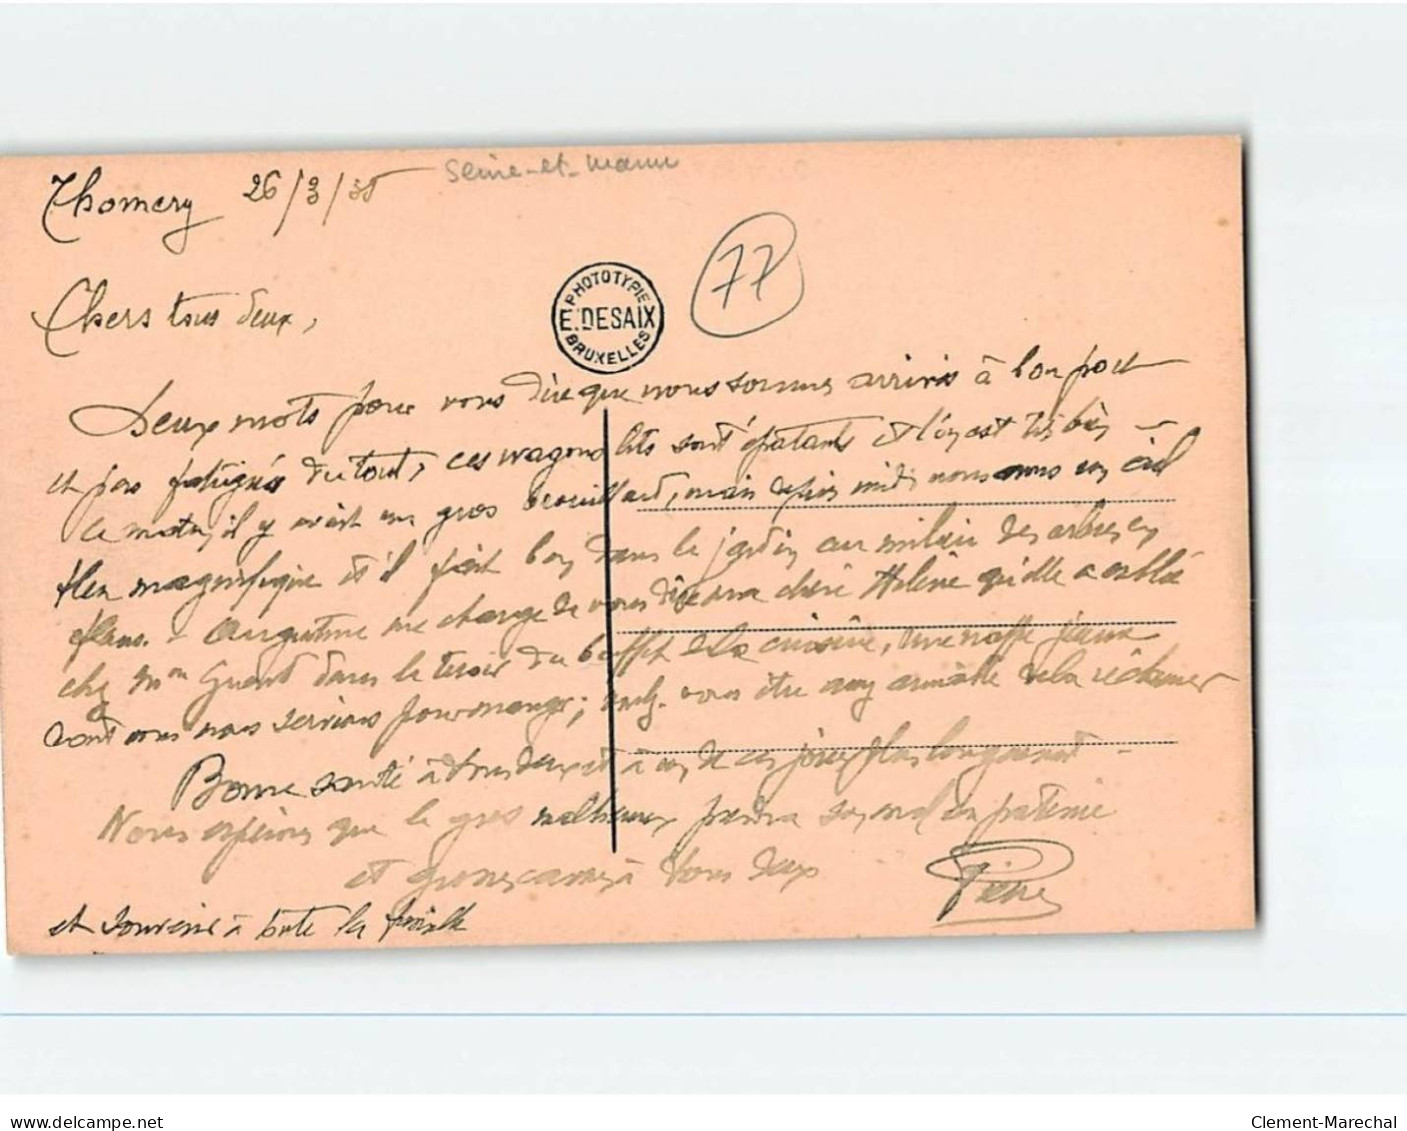 Thomery 26/3/35 Seine-et-Marne
77
PHOTOTYPIE
E. DESAIX
BRUXELLES
Chers tous deux,
Deux mots pour vous dire que nous sommes arrivés à bon port
et pas fatigués du tout, ces wagons lits sont épatants et l'on y est très bien
ce matin, il y avait un gros brouillard, mais depuis midi nous avons un ciel
bleu magnifique et il fait bon dans le jardin au milieu des arbres en
fleurs. Augustine me charge de vous dire ma chère Hélène qu'elle a oublié
chez Mme dans le tiroir du buffet de la cuisine, une nappe jaune
dont nous nous servions pour manger; vous être aimable de la réclamer
Bonne santé à tous deux et à un de ces jours plus longuement
Nous espérons que le gros malheureux prendra son mal en patience
et à vous deux
Pierre
et souvenir à toute la famille
delcampe.net
Clement-Marechal